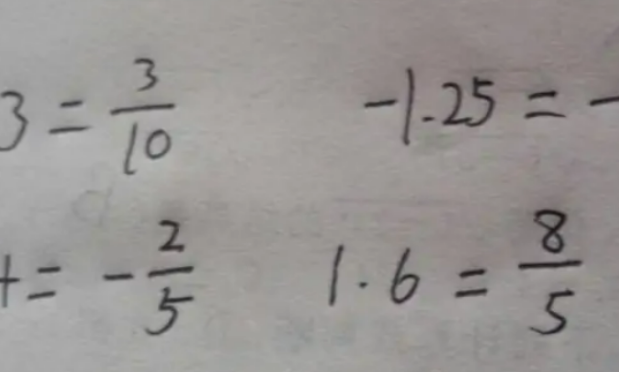 3 = 3/10 -1.25 = -
= -2/5 1.6 = 8/5